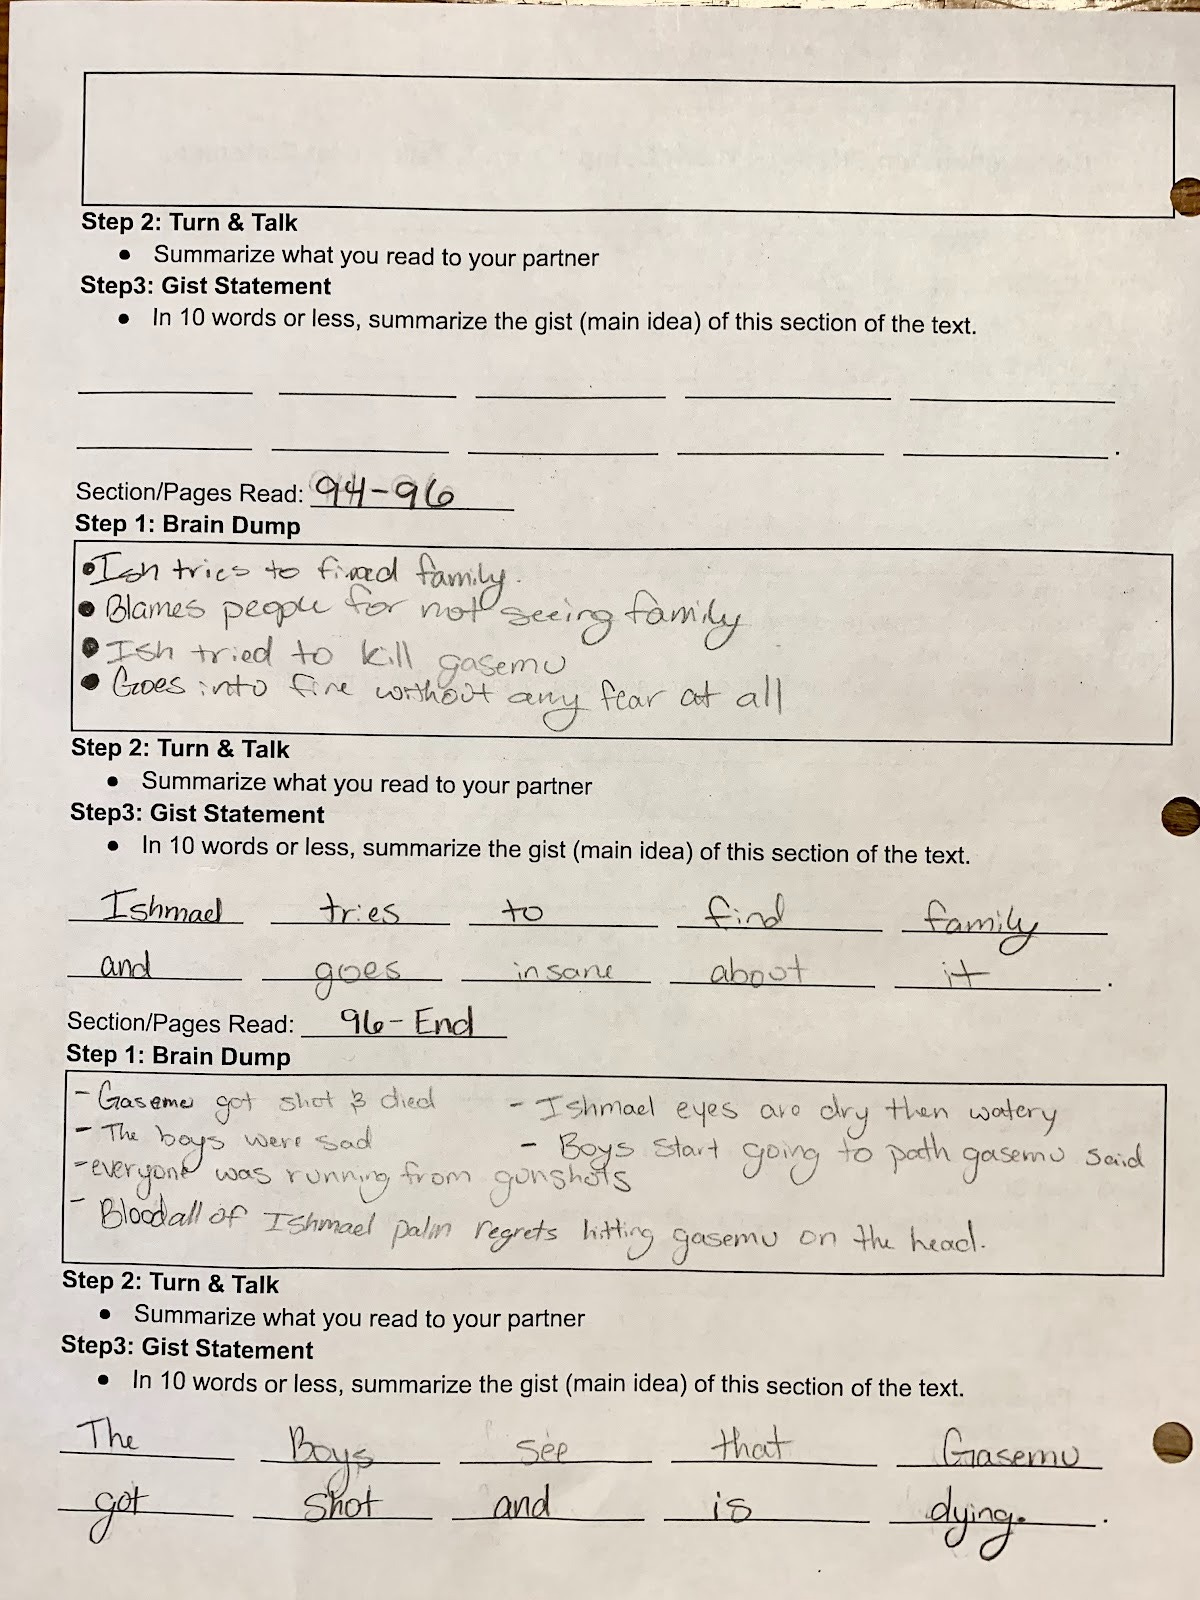 Step 2: Turn & Talk
• Summarize what you read to your partner
Step3: Gist Statement
• In 10 words or less, summarize the gist (main idea) of this section of the text.
Section/Pages Read: 94-96
Step 1: Brain Dump
• Ish tries to find family.
• Blames people for not seeing family
• Ish tried to kill gasemu
• Goes into fire without any fear at all
Step 2: Turn & Talk
• Summarize what you read to your partner
Step3: Gist Statement
• In 10 words or less, summarize the gist (main idea) of this section of the text.
Ishmael tries to find family
and goes insane about it.
Section/Pages Read: 96-End
Step 1: Brain Dump
- Gasemu got shot & died
- Ishmael eyes are dry then watery
- The boys were sad
- Boys start going to path gasemu said
- everyone was running from gunshots
- Blood all of Ishmael palm regrets hitting gasemu on the head.
Step 2: Turn & Talk
• Summarize what you read to your partner
Step3: Gist Statement
• In 10 words or less, summarize the gist (main idea) of this section of the text.
The Boys see that Gasemu
got shot and is dying..